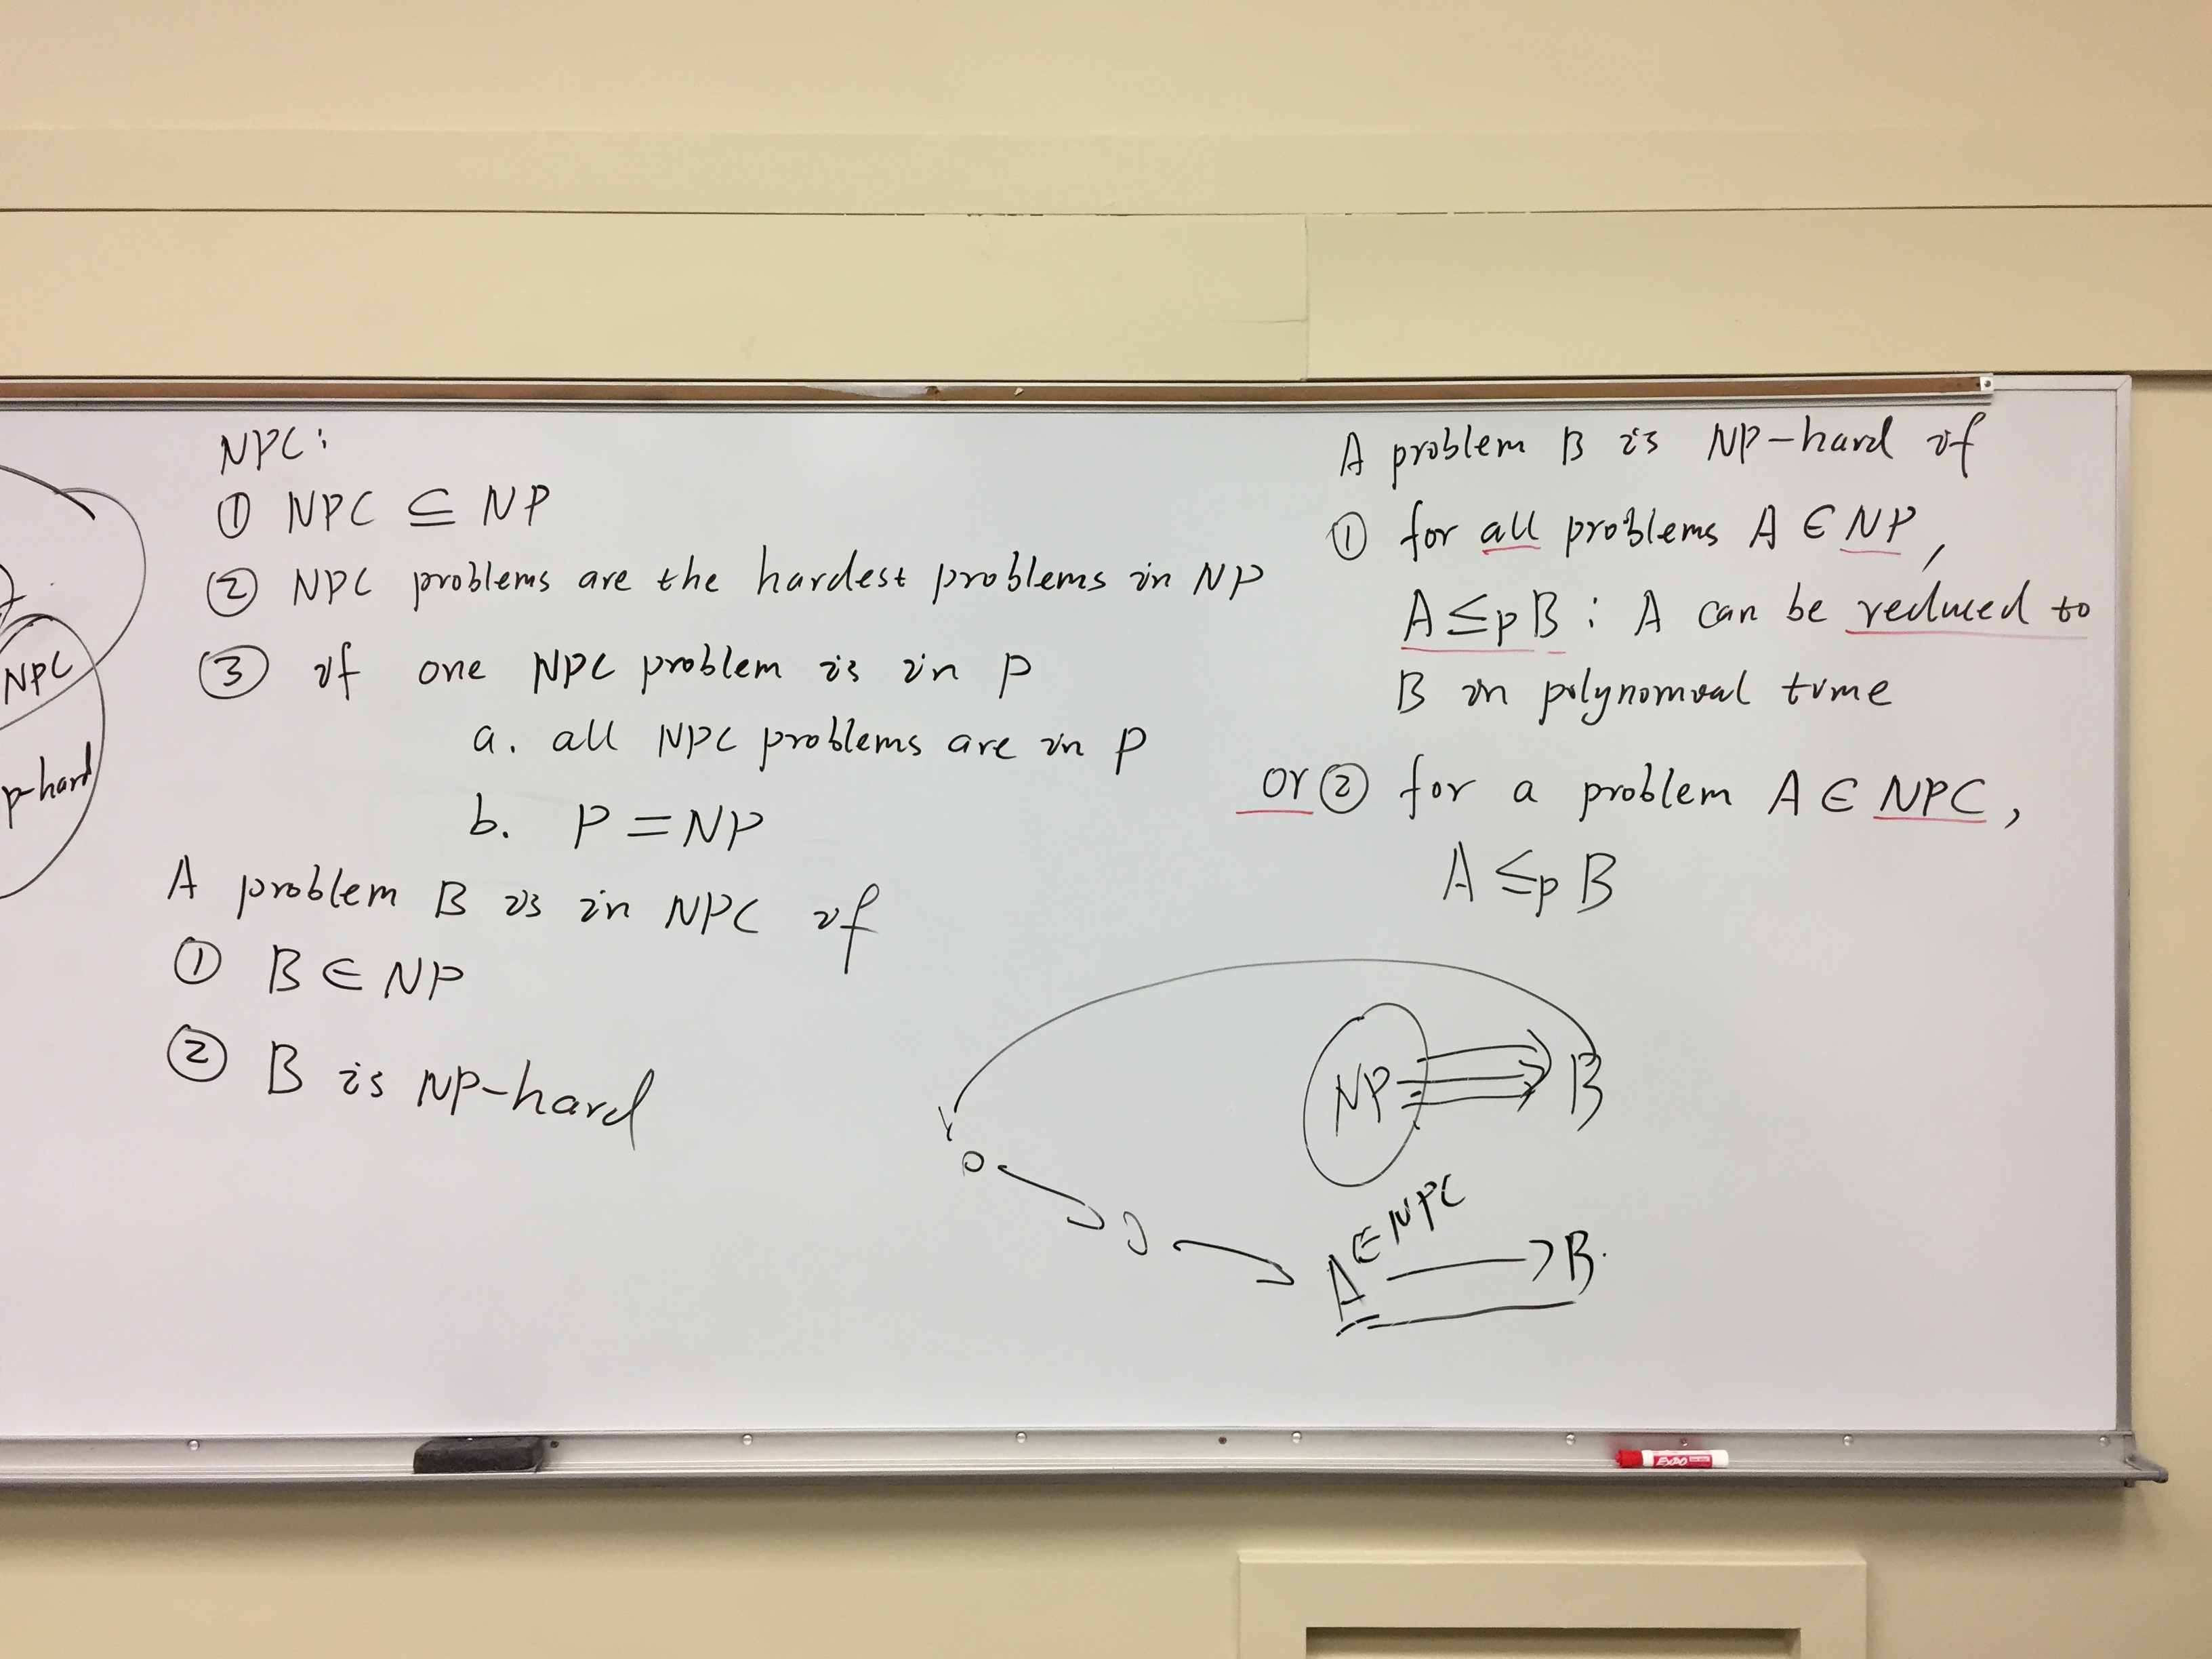 NPC
p-hard
NPC:
① NPC ⊆ NP
② NPC problems are the hardest problems in NP
③ if one NPC problem is in P
a. all NPC problems are in P
b. P = NP
A problem B is in NPC if
① B ∈ NP
② B is NP-hard
A problem B is NP-hard if
① for all problems A ∈ NP,
A ≤p B : A can be reduced to
B in polynomial time
or ② for a problem A ∈ NPC,
A ≤p B
NP B
A ∈ NPC B.
EXPO